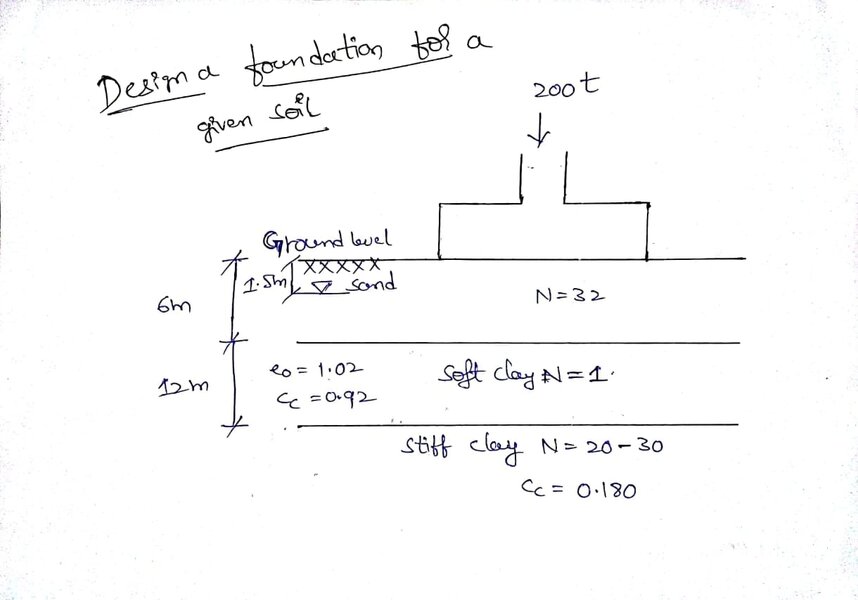 Design a foundation for a
given soil
200t
Ground level
XXXXX
1.5m
sand
6m
N=32
12m
e0 = 1.02
Cc = 0.92
soft clay N=1.
stiff clay N= 20-30
Cc = 0.180